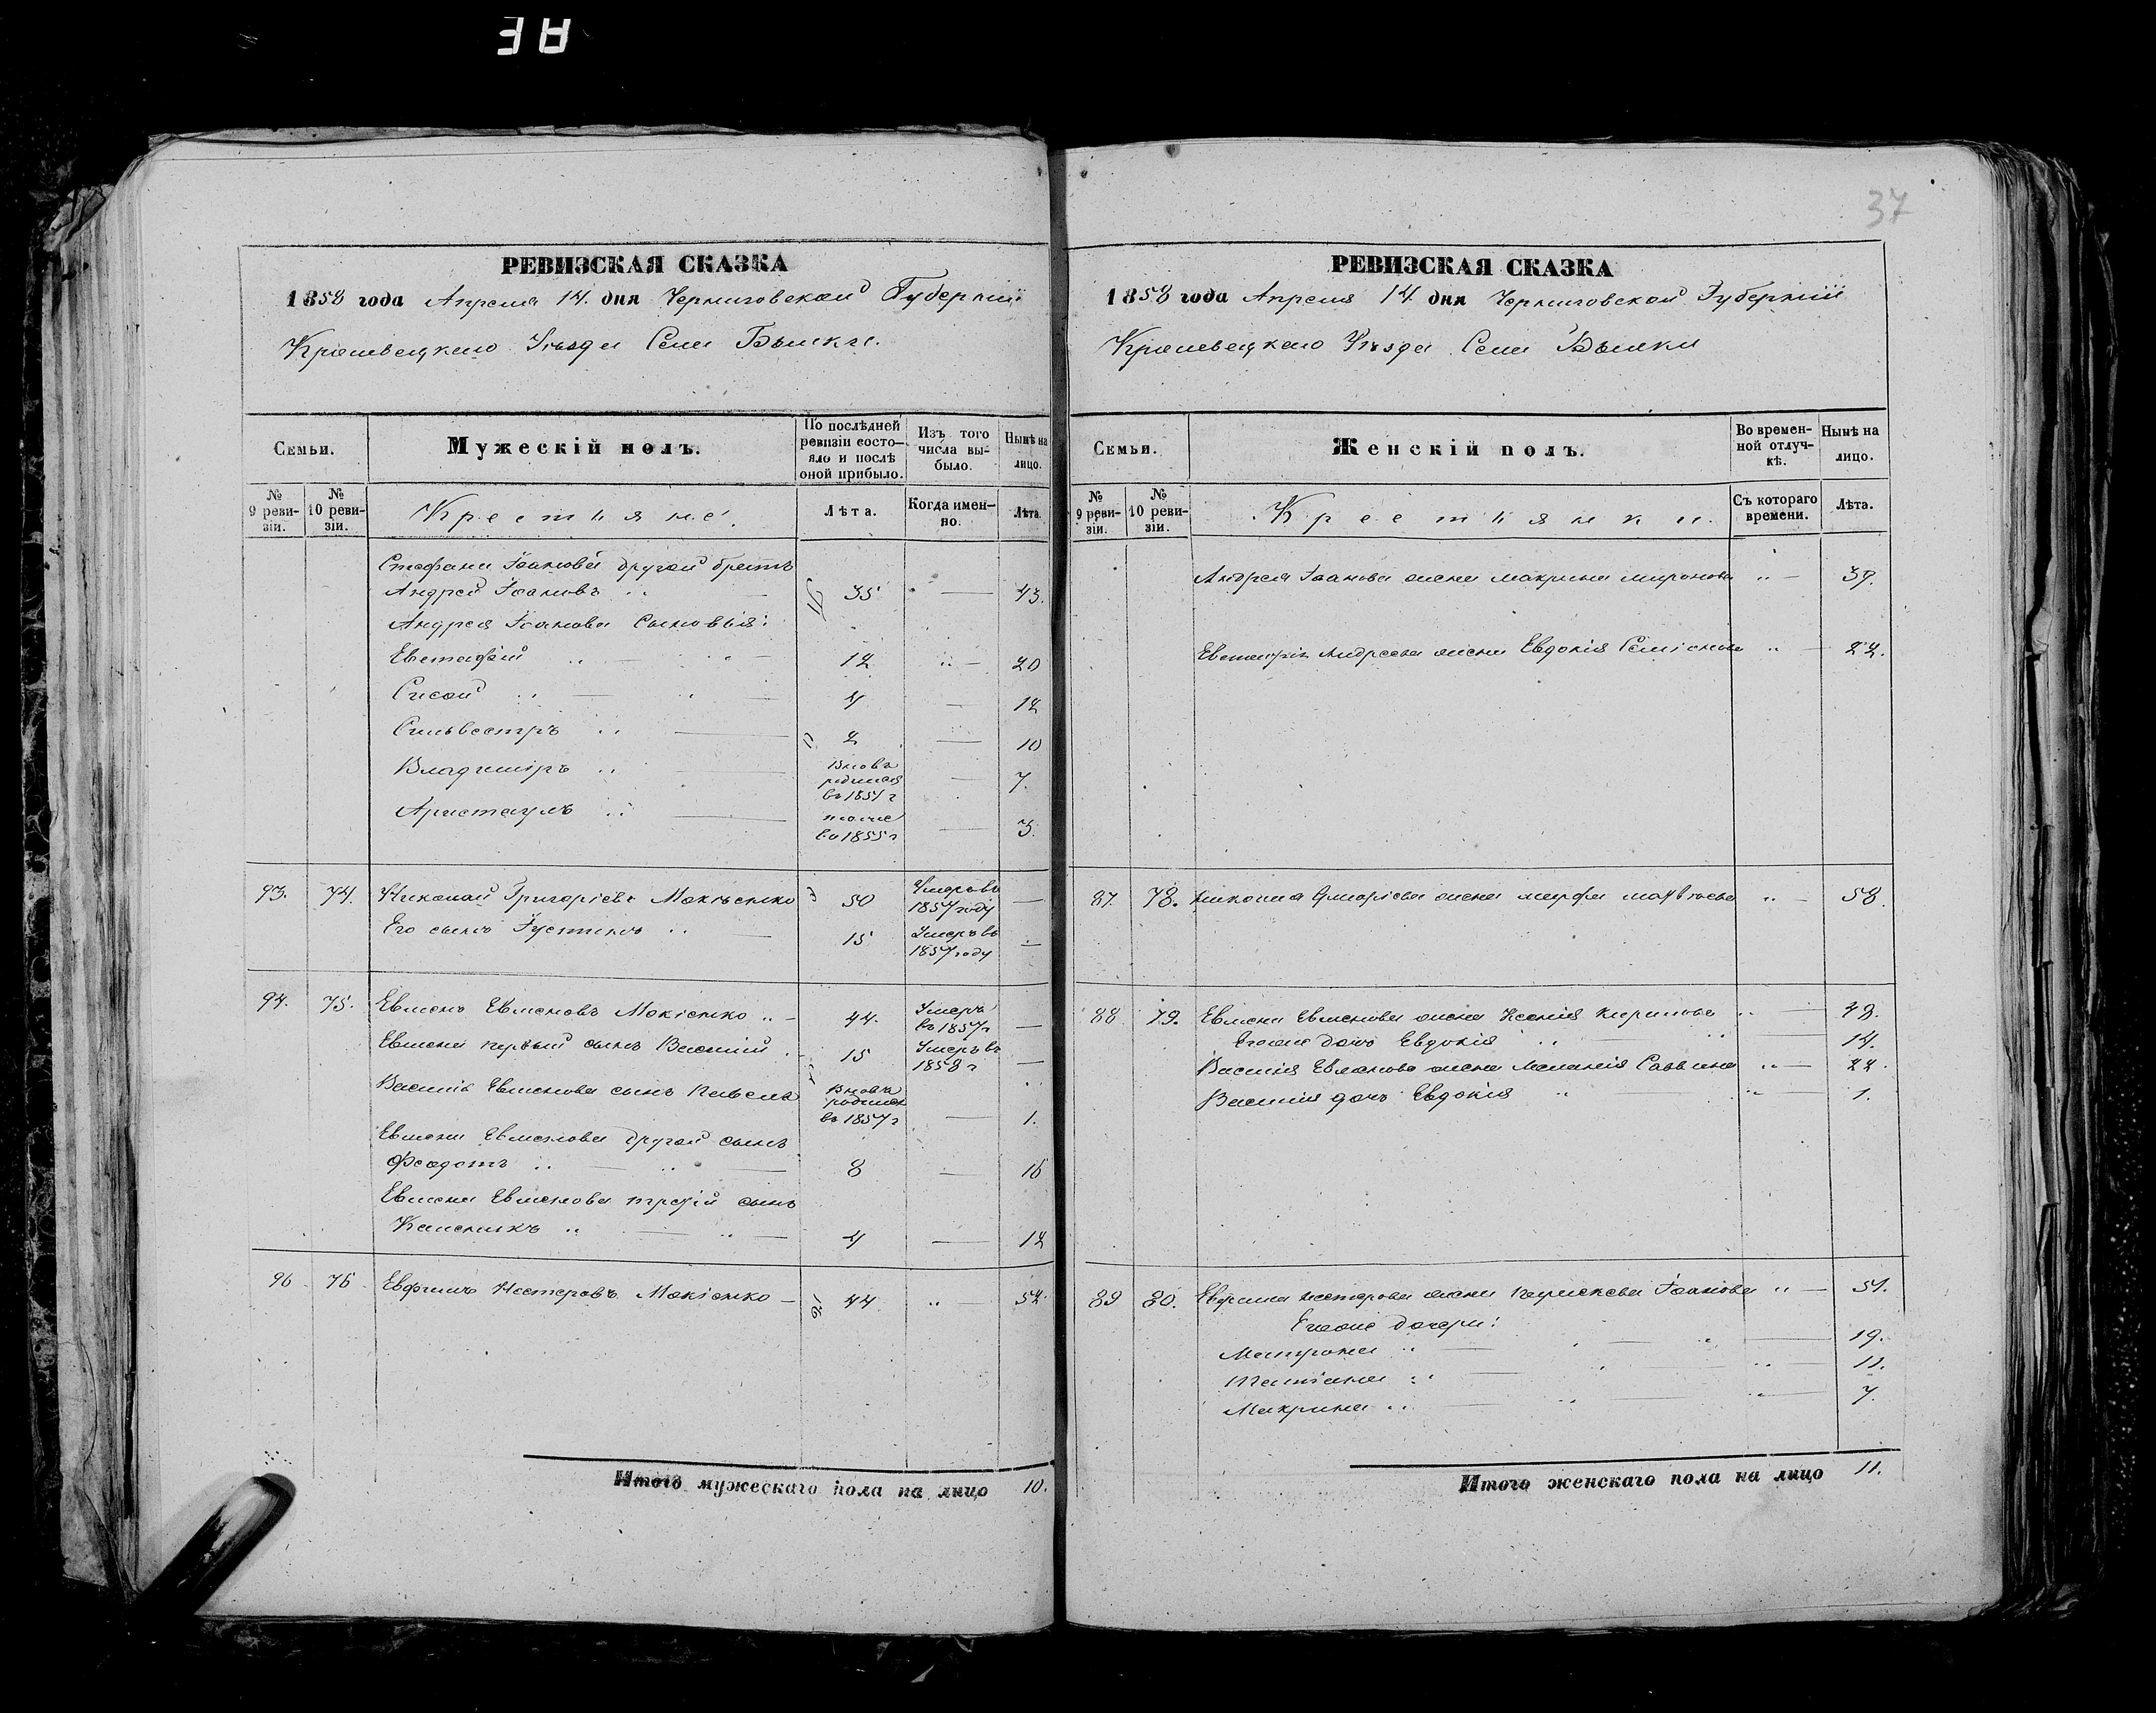 ЗА
37
РЕВИЗСКАЯ СКАЗКА
1858 года Апреля 14. дня Черниговской Губерніи
Кролевецкаго Уѣзда Села Бѣлки.
Семьи.
Мужескій полъ.
По послѣдней ревизіи состояло и послѣ оной прибыло.
Изъ того числа выбыло.
Нынѣ на лицо.
№ 9 ревизіи.
№ 10 ревизіи.
Крестьяне.
Лѣта.
Когда именно.
Лѣта.
Стефана Іоанова другой братъ
Андрей Іоановъ 35 — 43.
Андрея Іоанова Сыновья:
Евстафій 12 — 20
Сисой 4 — 12
Сильвестръ 2 — 10
Владиміръ Вновь родился въ 1851 г — 7.
тоже во 1855 г — 3.
93. 74. Николай Григоріевъ 50 Умеръ въ 1857 году —
Его сынъ Іустинъ 15 Умеръ въ 1857 году —
94. 75. Евменъ Евменовъ 44. Умеръ въ 1857 г —
Евмена первый сынъ Василій 15 Умеръ въ 1858 г —
Василія Евменова сынъ Павелъ Вновь родился въ 1857 г — 1.
Евмена Евменова другой сынъ
Феодотъ 8 — 16
Евмена Евменова третій сынъ
4 — 12
96 76 Евфимъ Нестеровъ 44 — 52.
Итого мужескаго пола на лицо 10.
РЕВИЗСКАЯ СКАЗКА
1858 года Апреля 14. дня Черниговской Губерніи
Кролевецкаго Уѣзда Села Бѣлки
Семьи.
Женскій полъ.
Во временной отлучкѣ.
Нынѣ на лицо.
№ 9 ревизіи.
№ 10 ревизіи.
Крестьянки.
Съ котораго времени.
Лѣта.
Андрея Іоанова жена Макрина Миронова — 39.
Евстафія Андреева жена Евдокія — 22.
87. 78. Николая Григоріева жена Марфа Матвѣева — 58.
88 79. Евмена Евменова жена Ксенія — 48.
Егоже дочь Евдокія 14.
Василія Евменова жена Меланія Саввина — 22.
Василія дочь Евдокія — 1.
89 80. Евфима Нестерова жена Параскева Іоанова — 51.
Егоже дочери:
Матрона 19.
Татіана 11.
Макрина 7.
Итого женскаго пола на лицо 11.